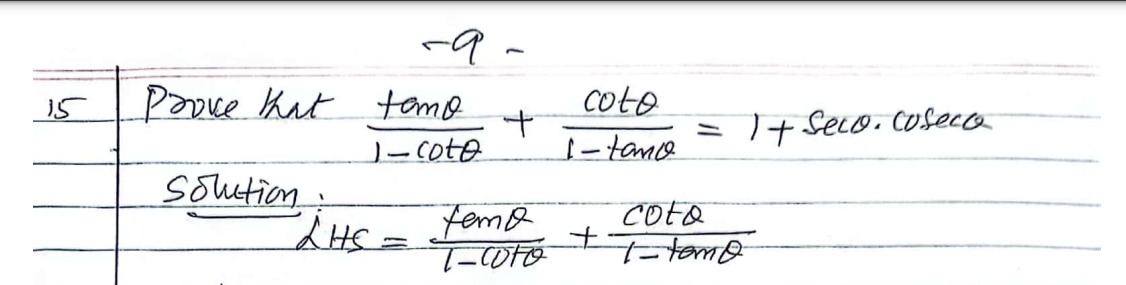 -9-
15 Prove that tanθ/(1-cotθ) + cotθ/(1-tanθ) = 1+ secθ.cosecθ
Solution:
LHS = tanθ/(1-cotθ) + cotθ/(1-tanθ)